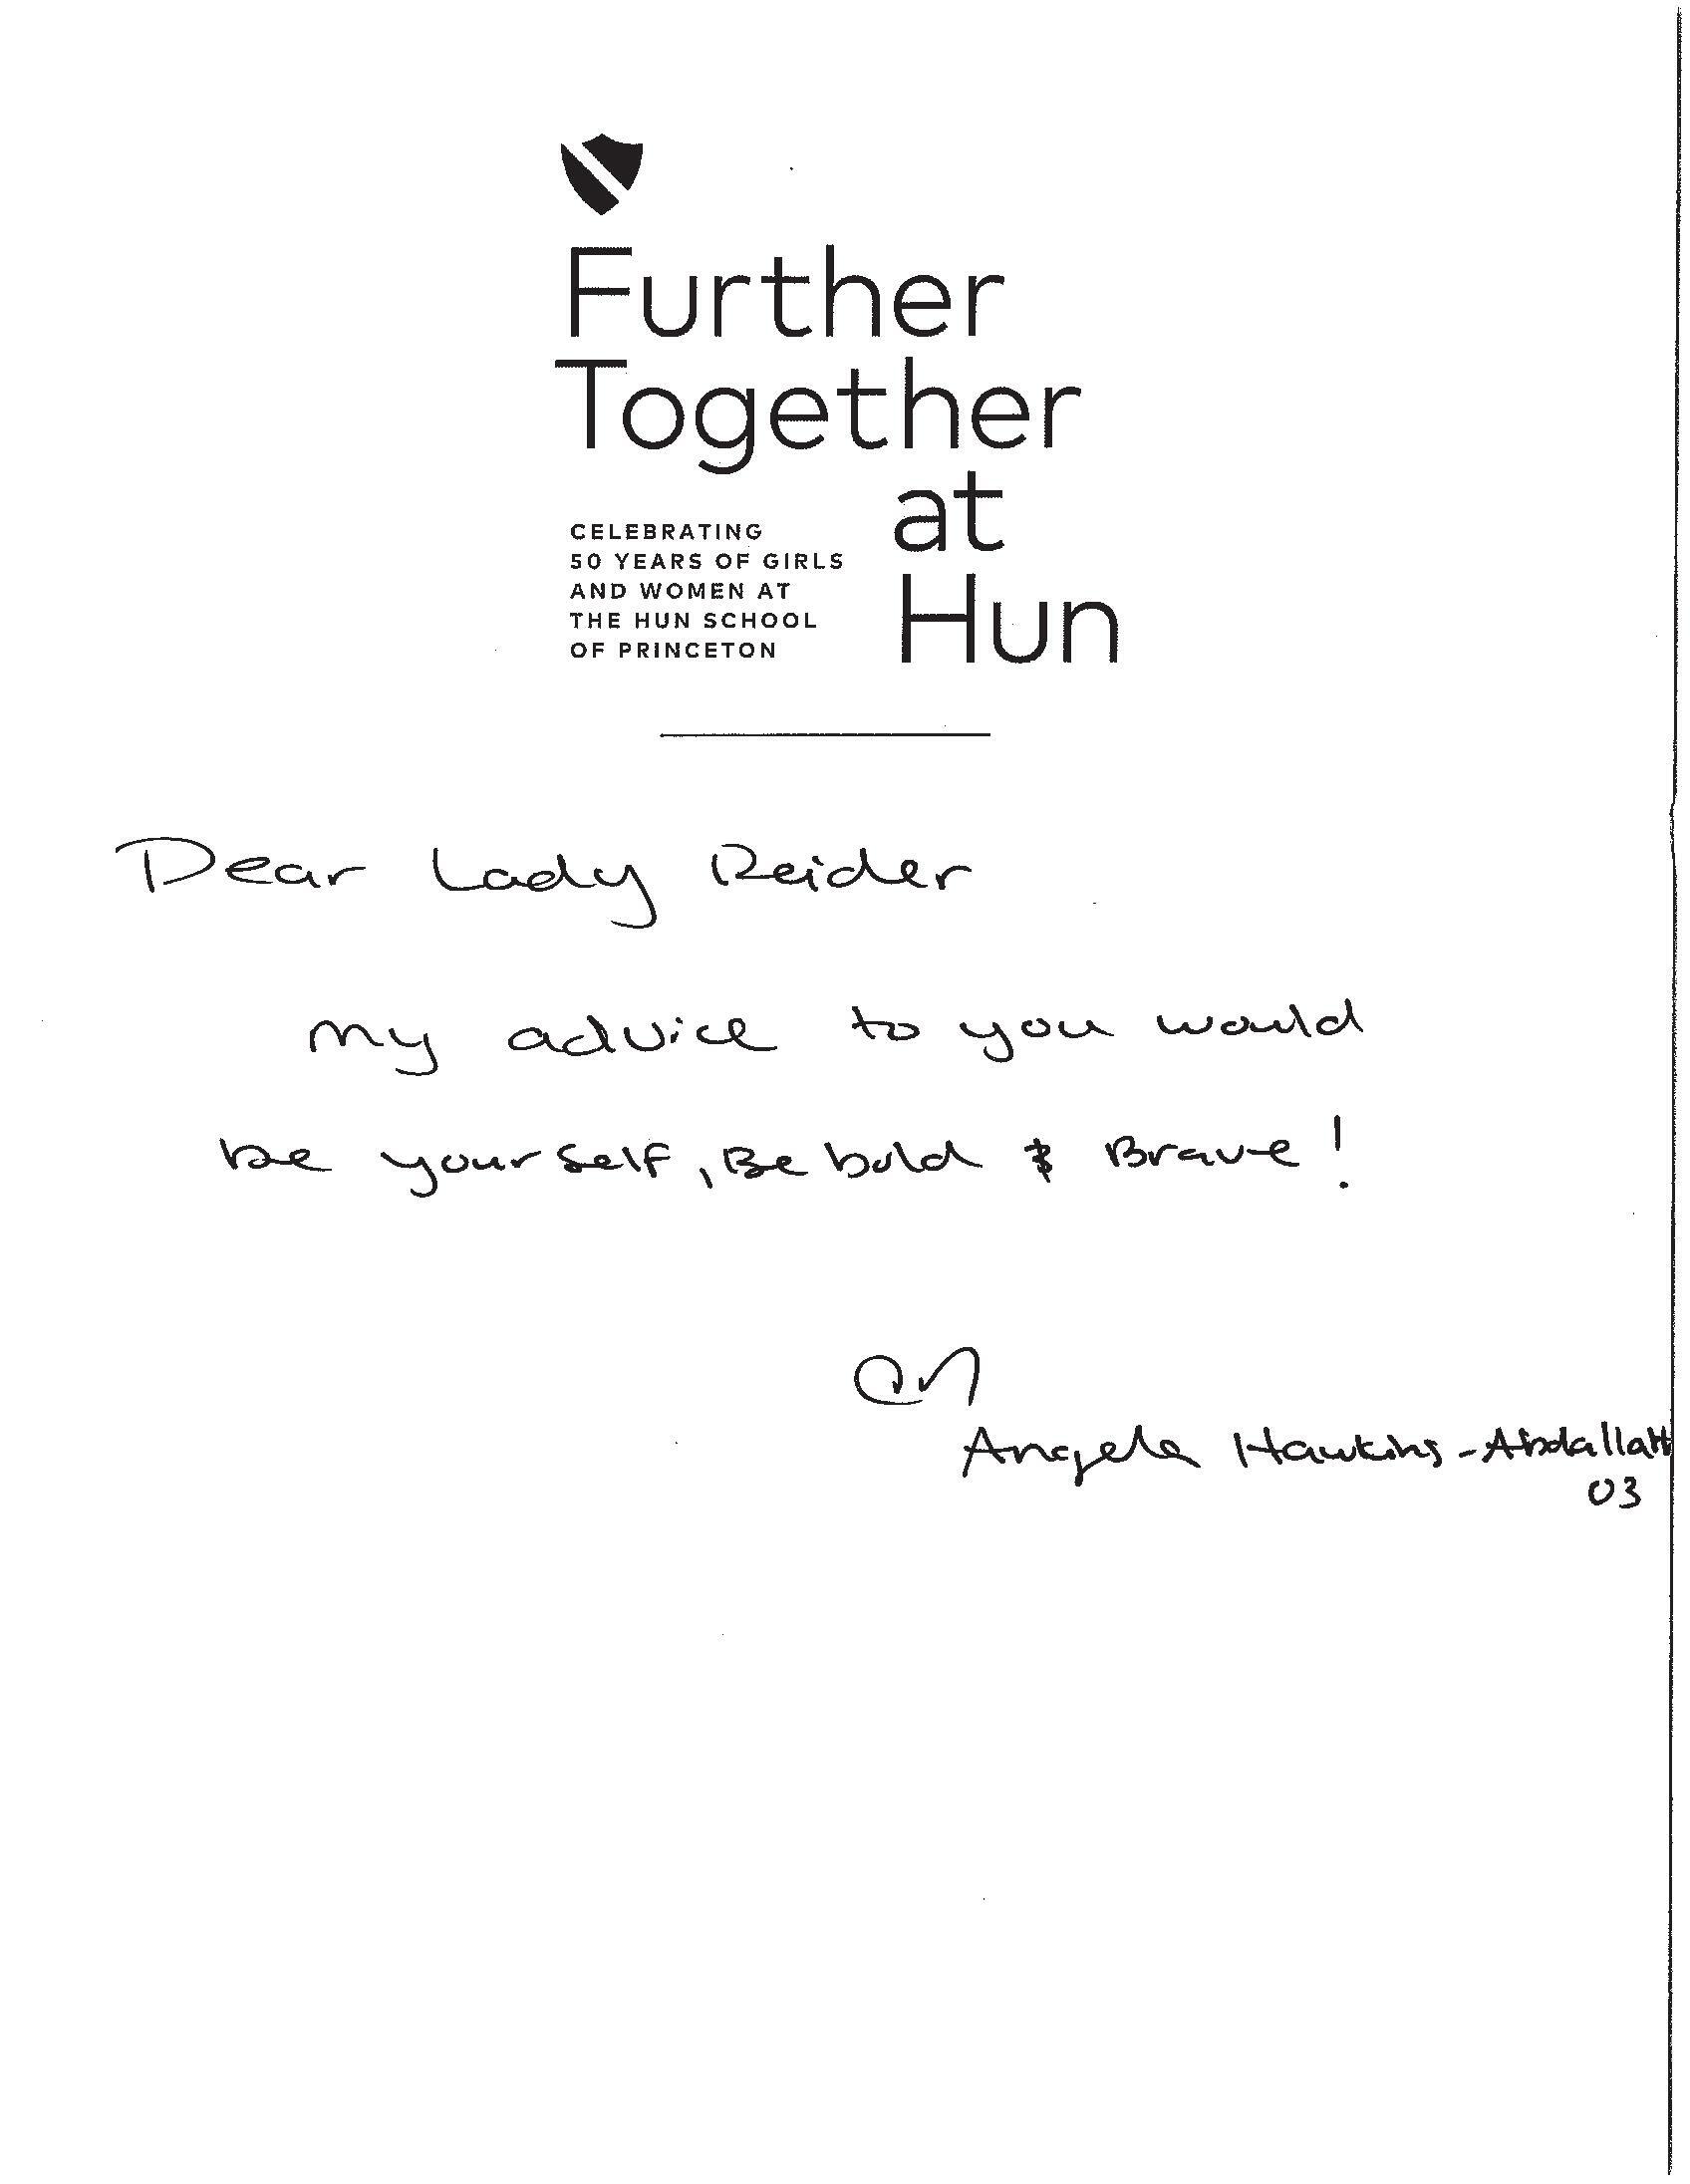 Further
Together
at
Hun
CELEBRATING
50 YEARS OF GIRLS
AND WOMEN AT
THE HUN SCHOOL
OF PRINCETON
Dear Lady Reider
my advice to you would
be yourself, Be bold & Brave!
Angela Hawkins-Abdallah
03